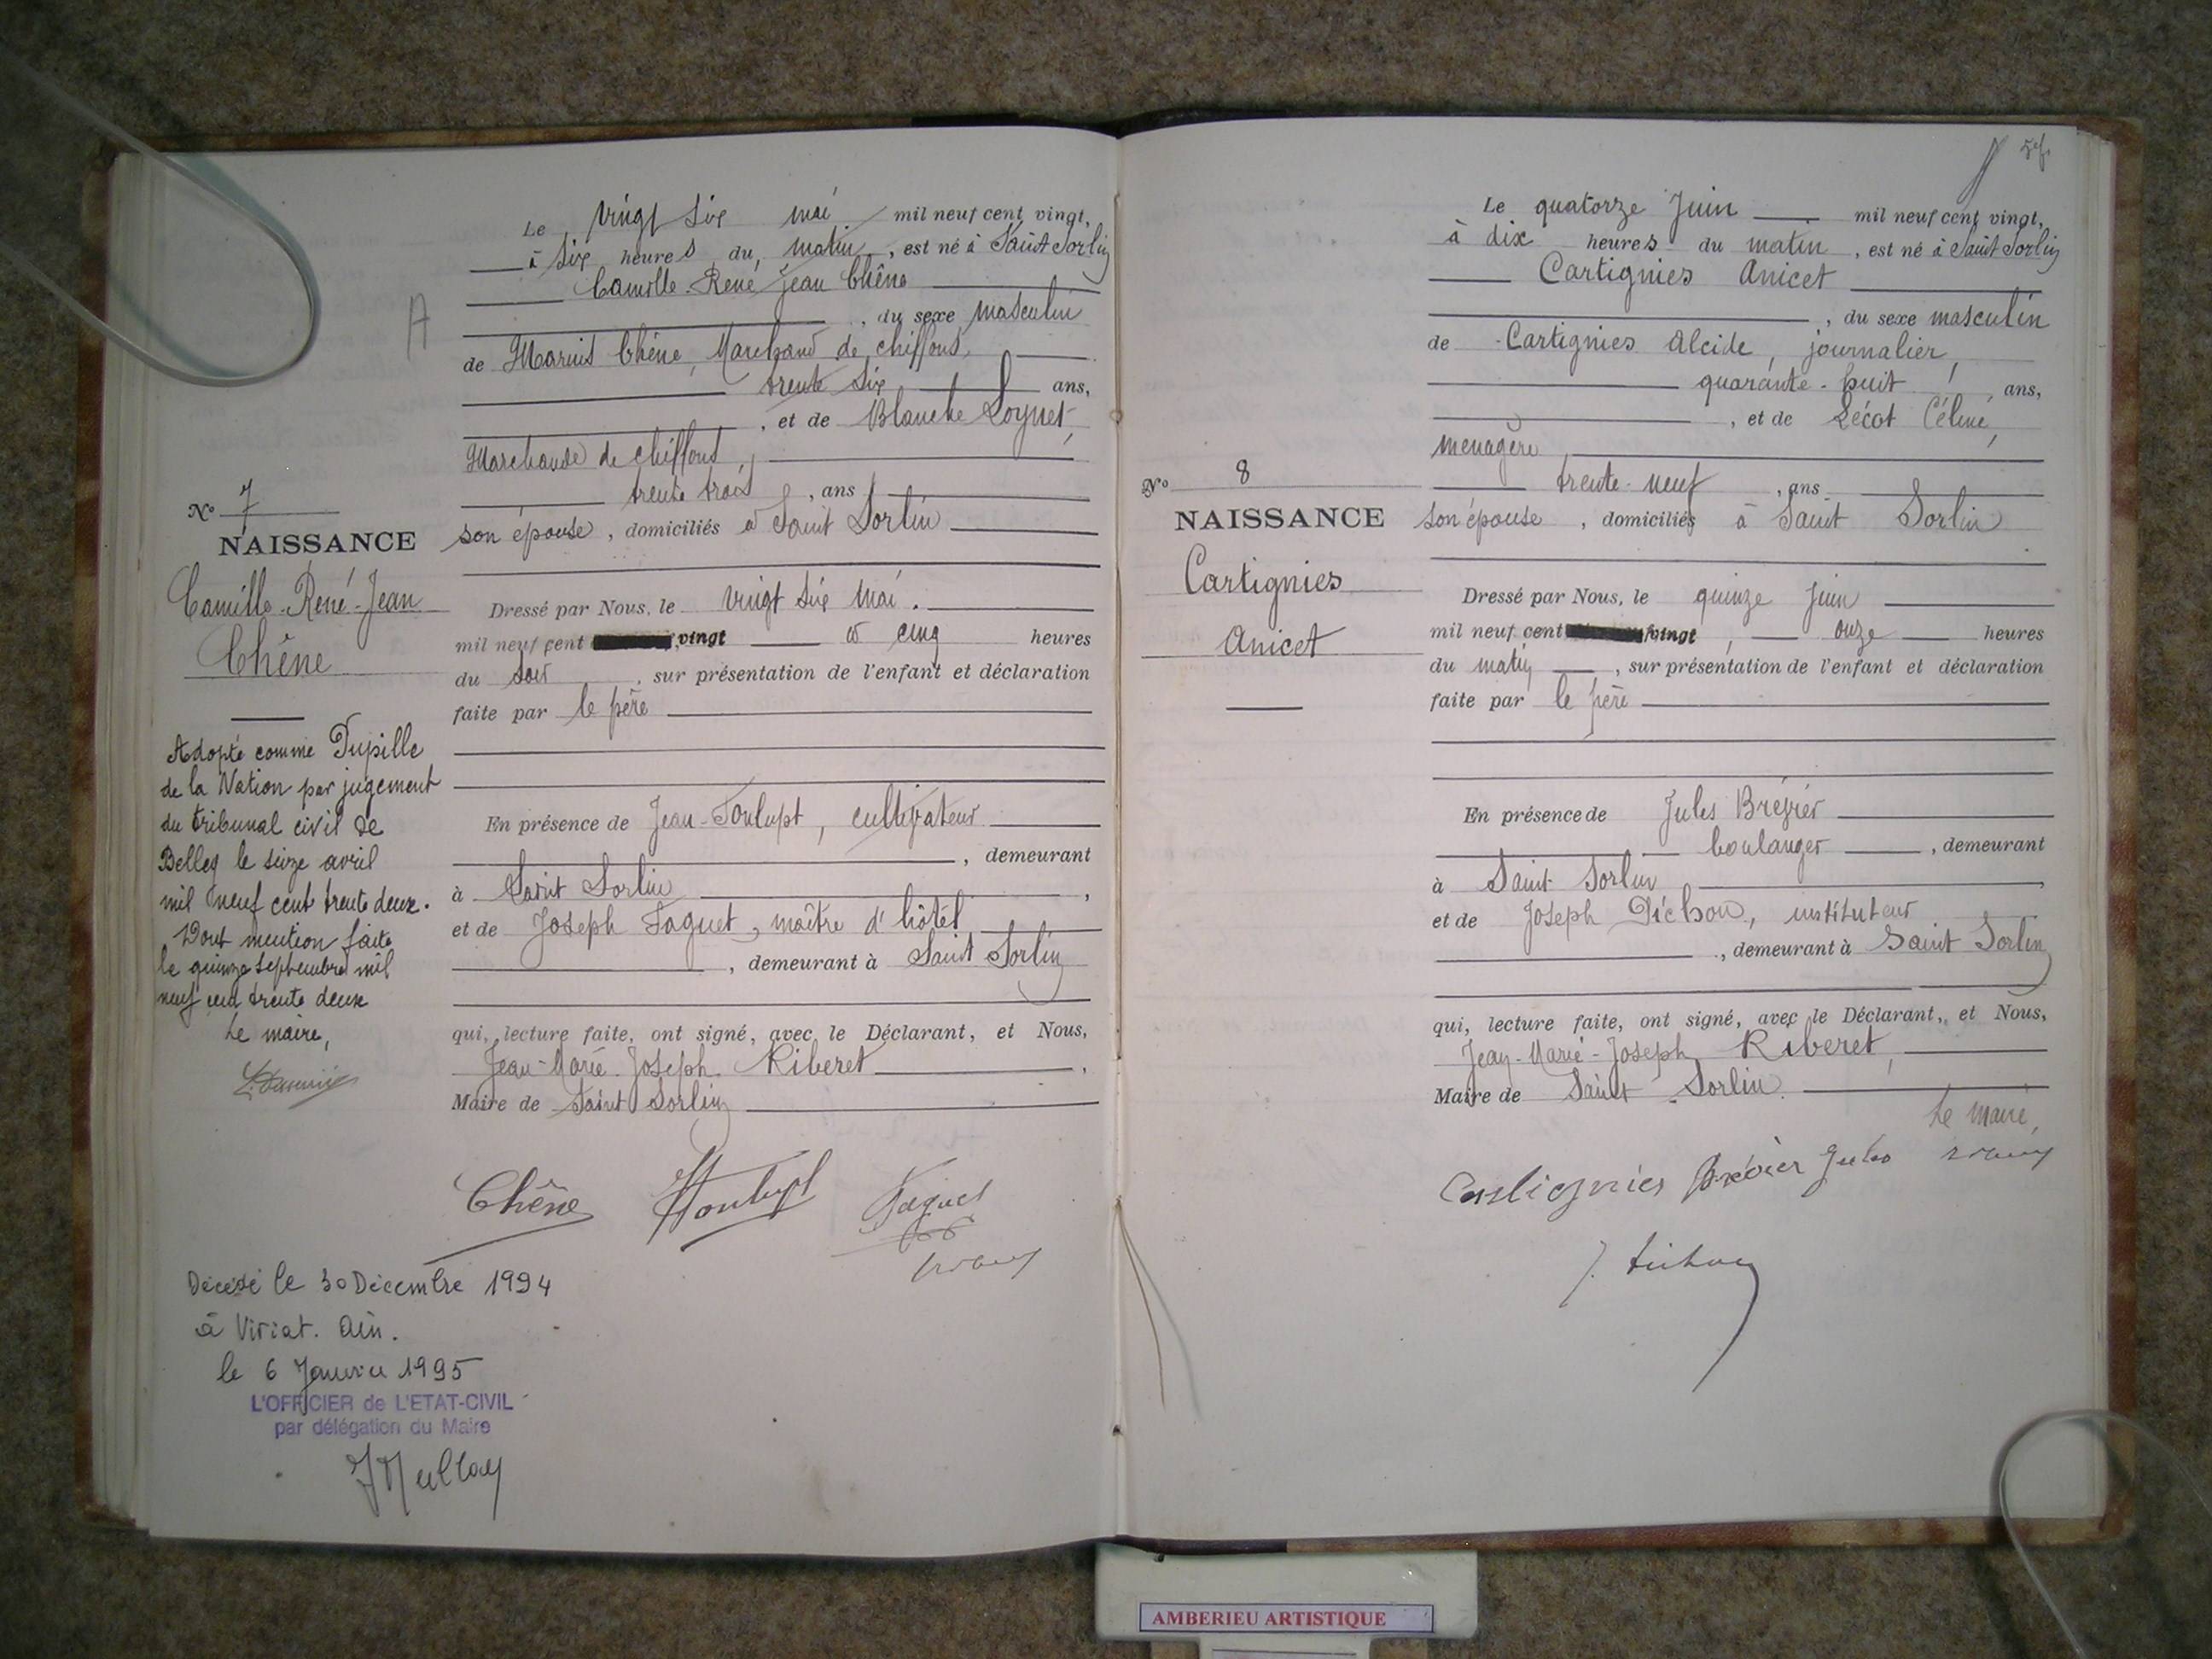 Le vingt six mai mil neuf cent vingt,
à six heures du matin, est né à Saint Sorlin
Camille-René Jean Chêne
, du sexe masculin
de Marius Chêne, Marchand de chiffons,
trente six ans,
, et de Blanche Loynet,
Marchande de chiffons,
trente trois, ans
son épouse, domiciliés à Saint Sorlin
Dressé par Nous, le vingt six mai.
mil neuf cent vingt à cinq heures
du soir, sur présentation de l'enfant et déclaration
faite par le père
En présence de Jean Toulupt, cultivateur
, demeurant
à Saint Sorlin,
et de Joseph Faguet, maître d'hôtel
, demeurant à Saint Sorlin
qui, lecture faite, ont signé, avec le Déclarant, et Nous,
Jean-Marie-Joseph Riberet,
Maire de Saint Sorlin
Chêne Faguet
A
N° 7
NAISSANCE
Camille-René-Jean
Chêne
Adopté comme Pupille
de la Nation par jugement
du tribunal civil de
Belley le seize avril
mil neuf cent trente deux.
Dont mention faite
le quinze septembre mil
neuf cent trente deux
Le maire,
Décédé le 30 Décembre 1994
à Viriat. Ain.
le 6 Janvier 1995
L'OFFICIER de L'ETAT-CIVIL
par délégation du Maire
Le quatorze Juin mil neuf cent vingt,
à dix heures du matin, est né à Saint Sorlin
Cartignies Anicet
, du sexe masculin
de Cartignies Alcide, journalier,
quarante-huit ans,
, et de Lécot Céline,
menagère
trente-neuf, ans
son épouse, domiciliés à Saint Sorlin
N° 8
NAISSANCE
Cartignies
Anicet
Dressé par Nous, le quinze juin
mil neuf cent vingt, onze heures
du matin, sur présentation de l'enfant et déclaration
faite par le père
En présence de Jules Brévier
boulanger, demeurant
à Saint Sorlin,
et de Joseph Pichon, instituteur
, demeurant à Saint Sorlin
qui, lecture faite, ont signé, avec le Déclarant, et Nous,
Jean-Marie-Joseph Riberet,
Maire de Saint Sorlin.
Le Maire,
Cartignies Brévier Jules
AMBERIEU ARTISTIQUE